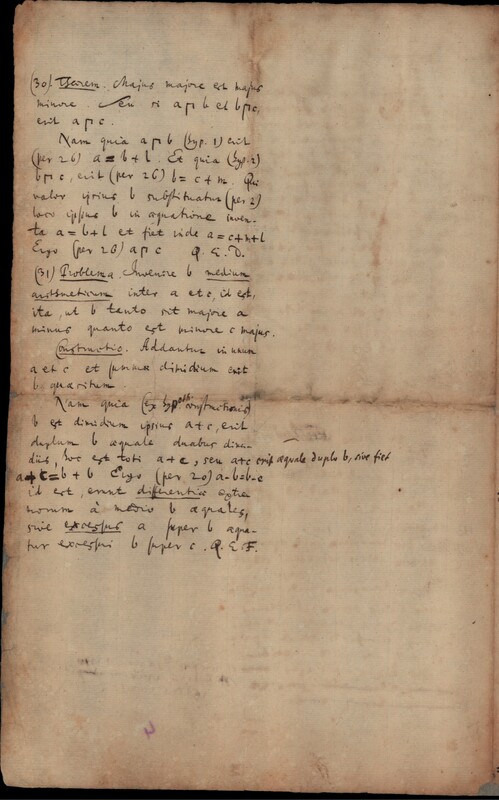 (30) Theorem. Majus majore est majus
minore. Seu si a ⊓ b et b ⊓ c,
erit a ⊓ c.
Nam quia a ⊓ b (hyp. 1) erit
(per 26) a = b + l. Et quia (hyp. 2)
b ⊓ c, erit (per 26) b = c + m. Qui
valor ipsius b substituatur (per 2)
loco ipsius b in aequatione inven-
ta a = b + l et fiet inde a = c + m + l
Ergo (per 26) a ⊓ c Q. E. D.
(31) Problema. Invenire b medium
arithmeticum inter a et c, id est,
ita, ut b tanto sit majore a
minus quanto est minore c majus.
Constructio. Addantur in unum
a et c et summae dimidium erit
b quaesitum
Nam quia (ex constructionis)
b est dimidium ipsius a + c, erit
duplum b aequale duabus dimi-
diis, hoc est toti a + c, seu a + c erit aequale duplo b, sive fiet
a + c = b + b Ergo (per 20) a - b = b - c
id est, erunt differentiae extre
morum à medio b aequales,
sive excessus a super b aequa-
tur excessui b super c. Q. E. F.